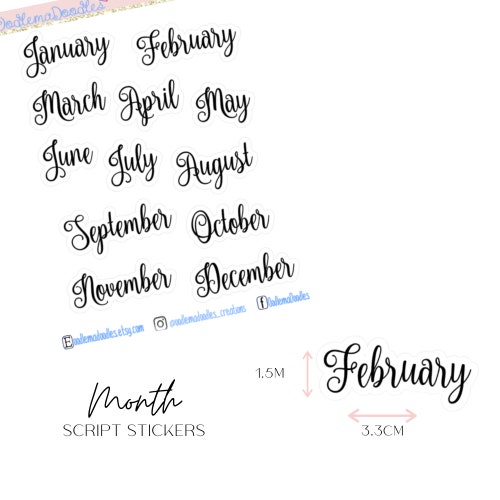 OodlemaDoodles
January February
March April May
June July August
September October
November December
Oodlemadoodles.etsy.com @oodlemadoodles_creations OodlemaDoodles
1.5M
February
3.3CM
Month
SCRIPT STICKERS